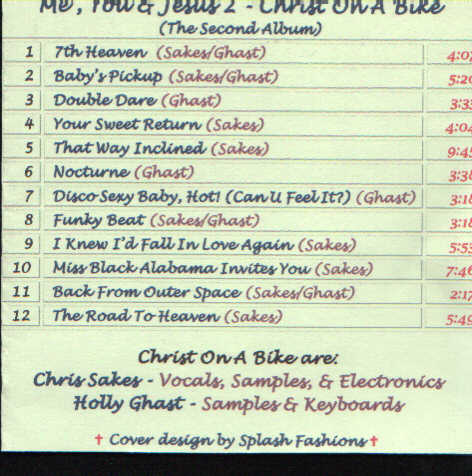 Me, You & Jesus 2 - Christ On A Bike
(The Second Album)
1 7th Heaven (Sakes/Ghast)
2 Baby's Pickup (Sakes/Ghast) 5:20
3 Double Dare (Ghast) 3:33
4 Your Sweet Return (Sakes) 4:04
5 That Way Inclined (Sakes) 9:45
6 Nocturne (Ghast) 3:38
7 Disco Sexy Baby, Hot! (Can U Feel It?) (Ghast) 3:18
8 Funky Beat (Sakes/Ghast) 3:18
9 I Knew I'd Fall In Love Again (Sakes) 5:53
10 Miss Black Alabama Invites You (Sakes) 7:46
11 Back From Outer Space (Sakes/Ghast) 2:17
12 The Road To Heaven (Sakes) 5:49
Christ On A Bike are:
Chris Sakes - Vocals, Samples, & Electronics
Holly Ghast - Samples & Keyboards
† Cover design by Splash Fashions †